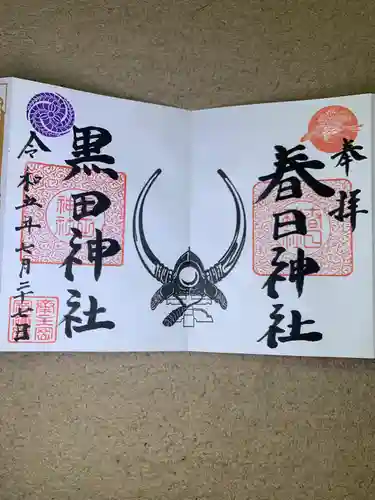 奉拝
春日神社
黒田神社
令和五年七月二十七日